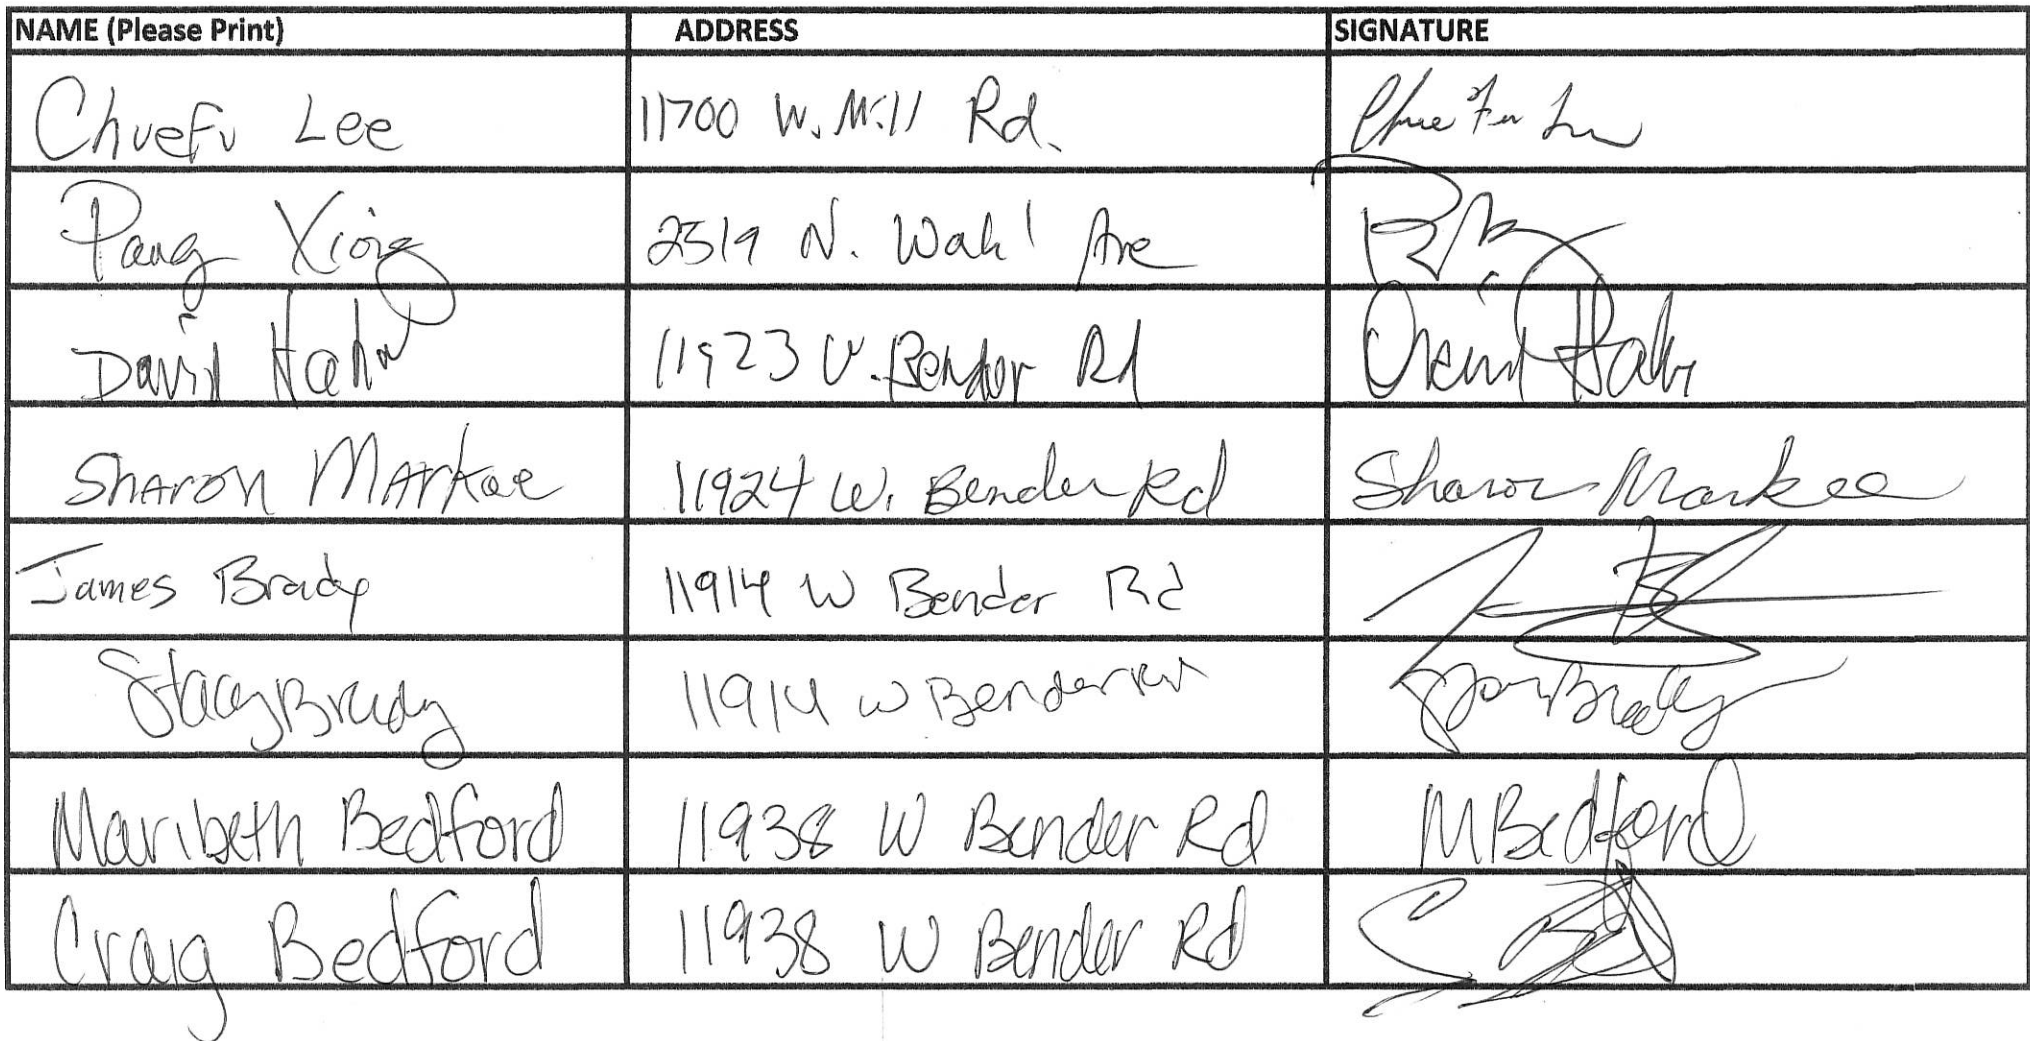 NAME (Please Print) ADDRESS SIGNATURE
Chuefu Lee 11700 W. Mill Rd. Chue Fu Lee
Pang Xiong 2519 N. Wahl Ave
David Hahn 11923 W. Bender Rd David Hahn
Sharon Markee 11924 W. Bender Rd Sharon Markee
James Brady 11914 W Bender Rd
Stacy Brady 11914 W Bender Rd Brady
Maribeth Bedford 11938 W Bender Rd M Bedford
Craig Bedford 11938 W Bender Rd